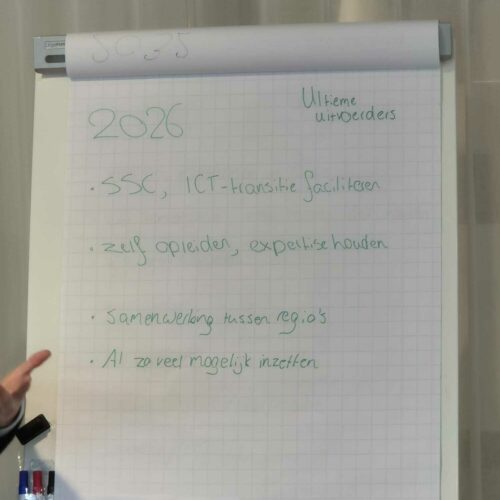 2026
Ultieme
uitvoerders
· SSC, ICT-transitie faciliteren
· zelf opleiden, expertise houden
· Samenwerking tussen regio's
· AI zo veel mogelijk inzetten